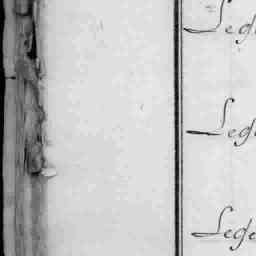 Lege
Lege
Lege